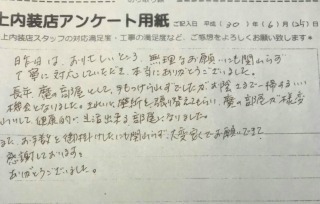 上内装店アンケート用紙 ご記入日 平成(30)年(6)月(25)日
上内装店スタッフの対応満足度・工事の満足度など、ご感想をよろしくお願い致します。
昨日は、お忙しいところ、無理なお願いにも関わらず
丁寧に対応していただき、本当にありがとうございました。
長年 魔の部屋として、手もつけられずでしたがお陰さまで一掃するいい
機会となりました。きれいに壁紙を張り替えてもらい、魔の部屋が様変
わりして、健康的に生活出来る部屋になりました。
また、お手数を御掛けしたにも関わらず、大変安くでお願いできて
感謝しております。
ありがとうございました。